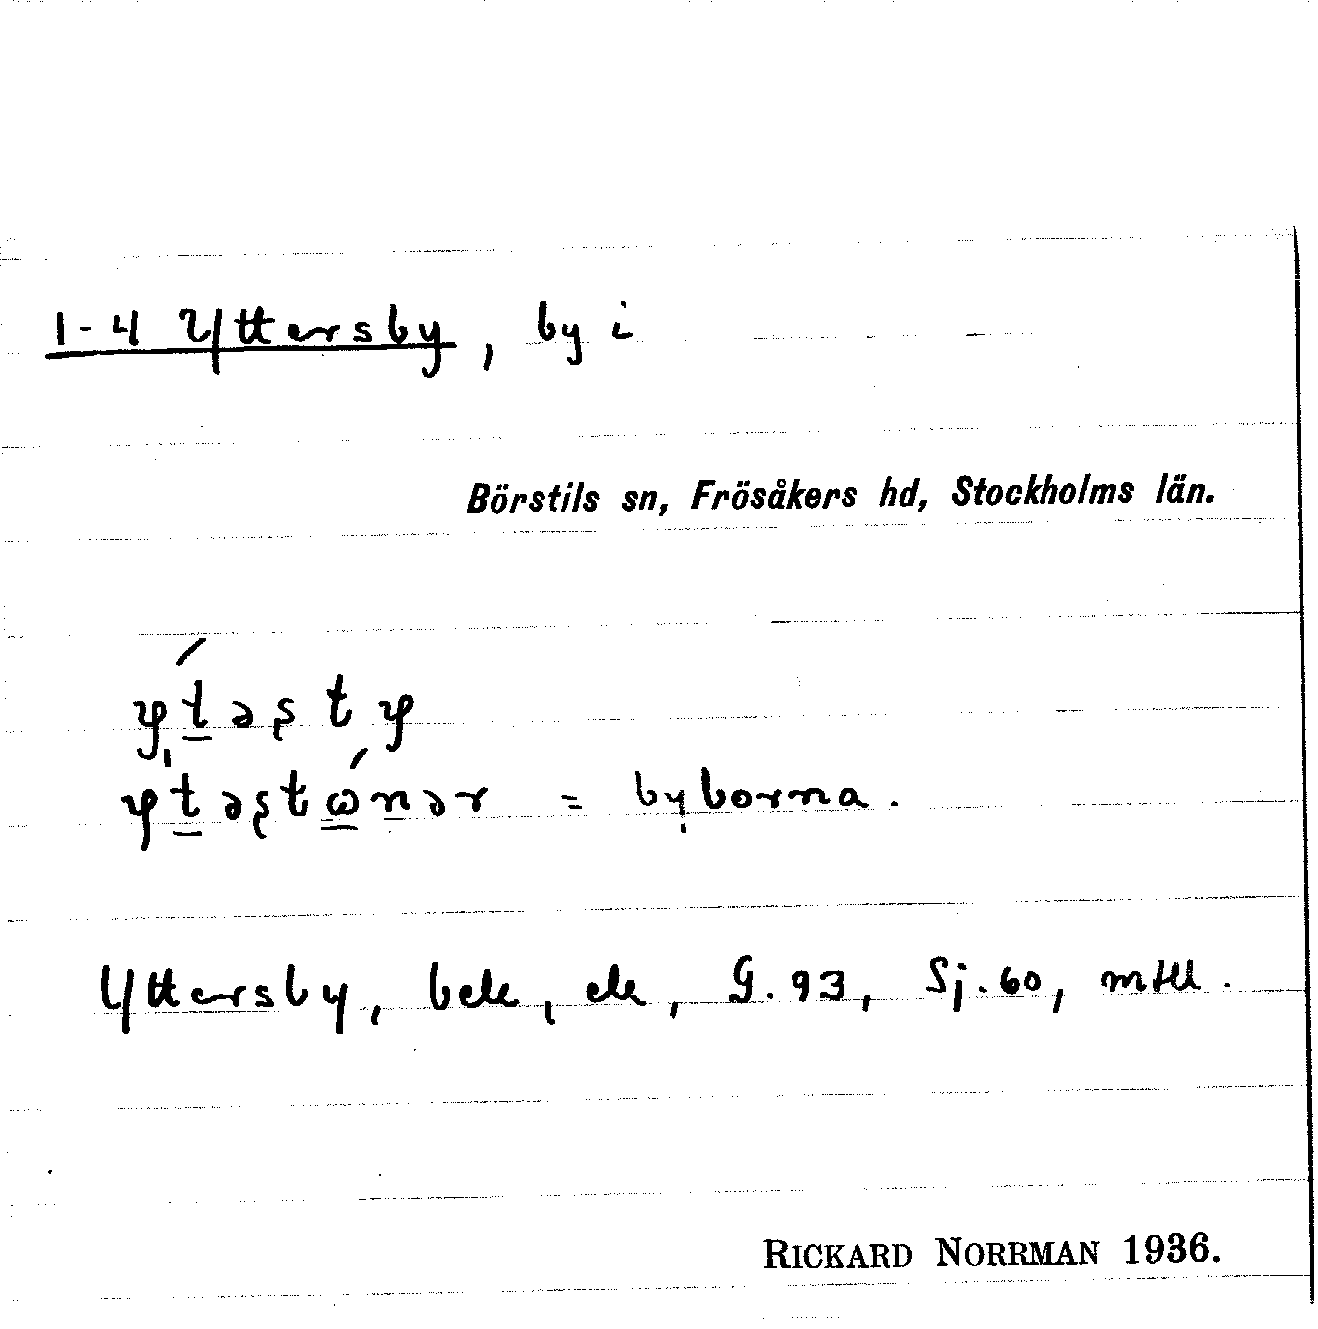 1-4 Yttersby, by i
Börstils sn, Frösåkers hd, Stockholms län.
= byborna.
Yttersby, bek, ek, G. 93, Sj. 60, mtl.
RICKARD NORRMAN 1936.